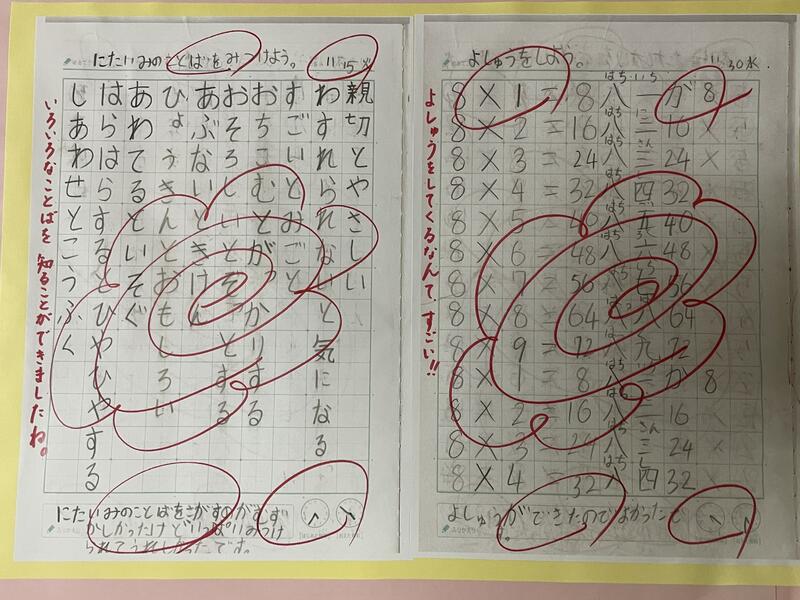 にたいみのことばをみつけよう。
11 15 火
親切とやさしい
わすれられないと気になる
すごいとみごと
おちこむとがっかりする
おそろしいとぞっとする
あぶないときけん
ひょうきんとおもしろい
あわてるといそぐ
はらはらするとひやひやする
しあわせとこうふく
いろいろなことばを 知ることができましたね。
にたいみのことばをさがすのがむず
かしかったけどいっぱいみつけ
られてうれしかったです。
よしゅうをしよう。
11 30 水
8×1=8 八一が8
8×2=16 八二16
8×3=24 八三24
8×4=32 八四32
8×5=40 八五40
8×6=48 八六48
8×7=56 八七56
8×8=64 八八64
8×9=72 八九72
8×1=8 八一が8
8×2=16 八二16
8×3=24 八三24
8×4=32 八四32
よしゅうをしてくるなんて、すごい!!
よしゅうができたのでよかったで
す。